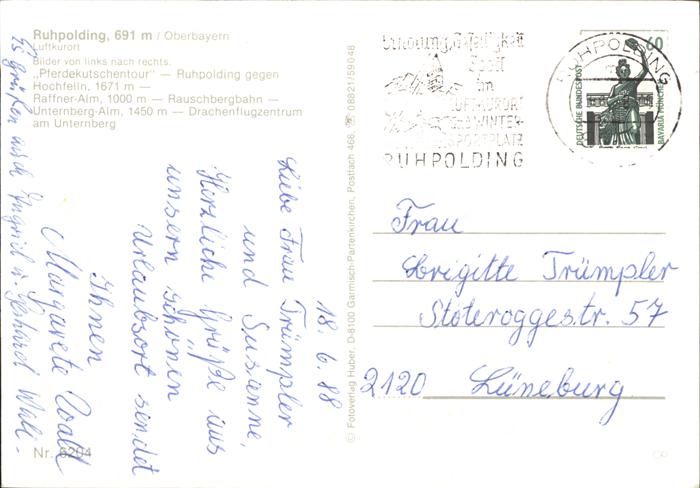 Ruhpolding, 691 m / Oberbayern
Luftkurort
Bilder von links nach rechts.
„Pferdekutschentour" — Ruhpolding gegen
Hochfelln, 1671 m —
Raffner-Alm, 1000 m — Rauschbergbahn —
Unternberg-Alm, 1450 m — Drachenflugzentrum
am Unternberg
18. 6. 88
Liebe Frau Trümpler
und Susanne,
Herzliche Grüße aus
unserm schönen
Urlaubsort sendet
Ihnen
Margarete
Es grüßen auch Ingrid u. Gerhard
Nr. 6204
© Fotoverlag Huber, D-8100 Garmisch-Partenkirchen, Postfach 468, ☎ 08821/59048
Erholung, Geselligkeit
Sport
im
LUFTKURORT
WINTER-
SPORTPLATZ
RUHPOLDING
RUHPOLDING
60
DEUTSCHE BUNDESPOST
BAVARIA MÜNCHEN
Frau
Brigitte Trümpler
Stöteroggestr. 57
2120 Lüneburg